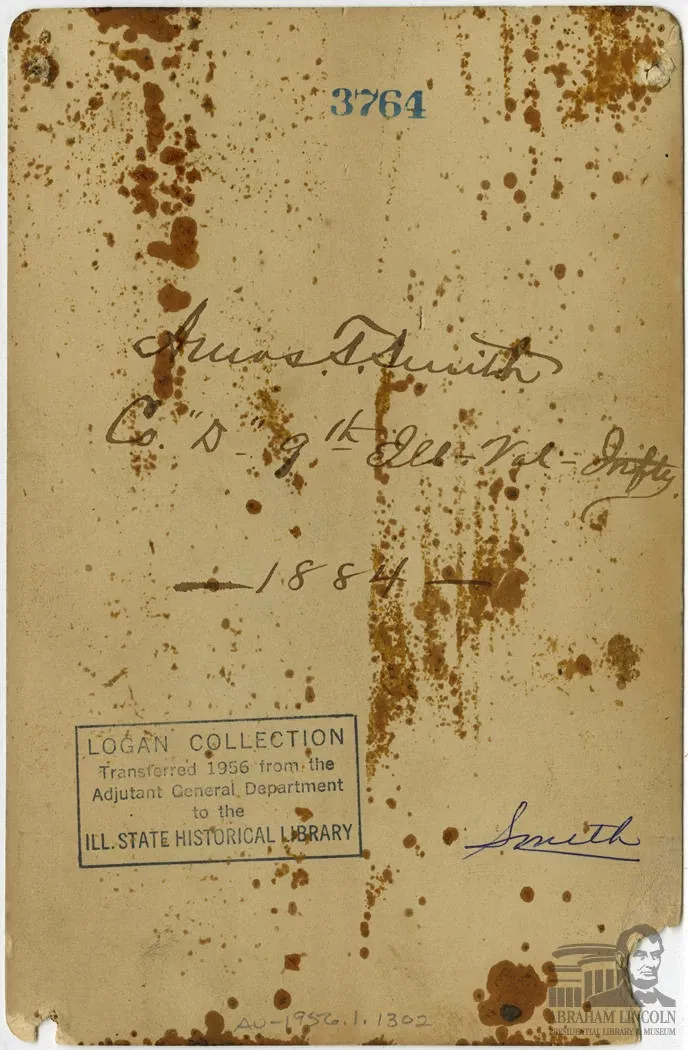 3764
Amos. T. Smith
Co. "D" 9th Ill-Vol-Infty.
— 1884 —
LOGAN COLLECTION
Transferred 1956 from the
Adjutant General Department
to the
ILL. STATE HISTORICAL LIBRARY
Smith
AV-1956.1.1302
ABRAHAM LINCOLN
PRESIDENTIAL LIBRARY & MUSEUM